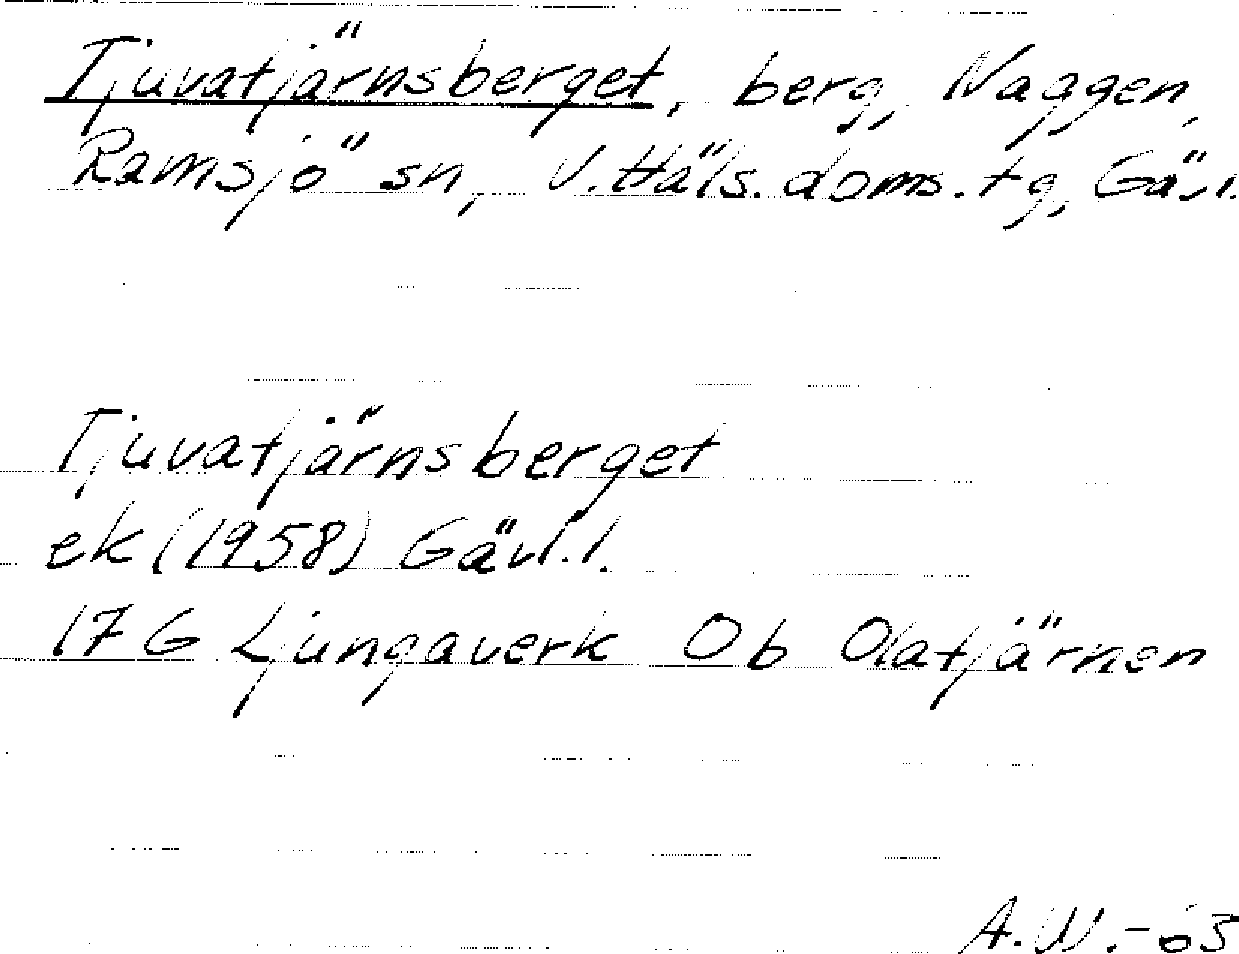 Tjuvatjärnsberget, berg, Naggen,
Ramsjö sn, V. Häls. doms. tg, Gävl.
Tjuvatjärnsberget
ek (1958) Gävl. l.
17 G Ljungaverk Ob Olatjärnen
A.W.-63